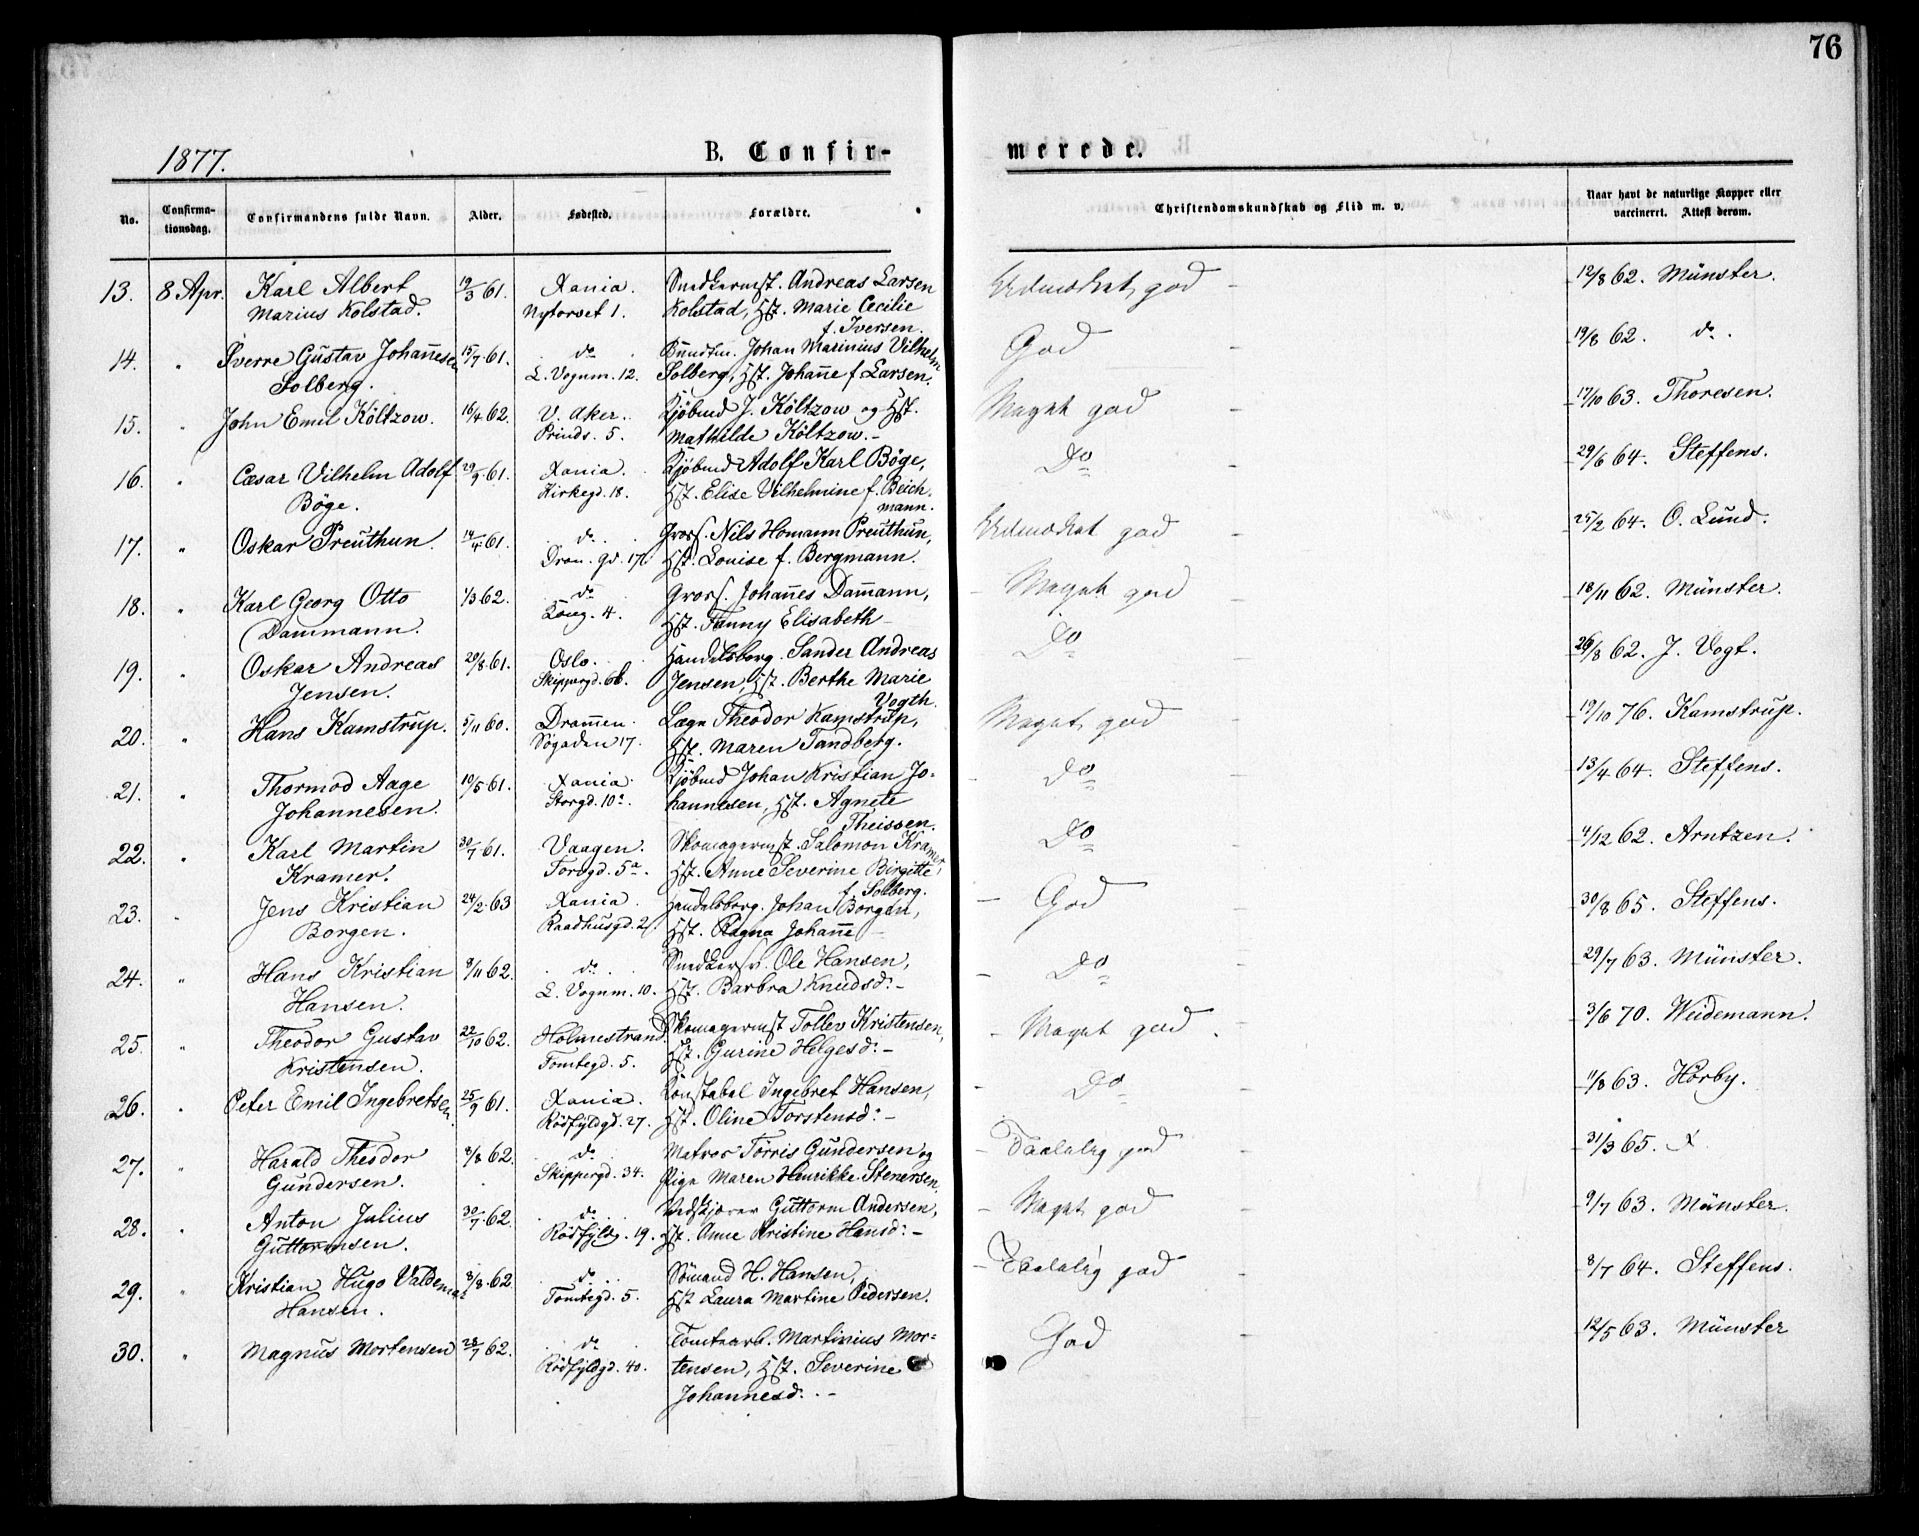 76
1877.
B. Confir-
merede.
No.
Confirma-
tionsdag.
Confirmandens fulde Navn.
Alder.
Fødested.
Forældre.
Christendomskundskab og Flid m. v.
Naar havt de naturlige Kopper eller
vaccineret. Attest derom.
13. 8 Apr. Karl Albert 19/3 61. Xania. Snedkermst. Andreas Larsen Udmærket god - 12/8 62. Münster.
Marius Kolstad. Nytorvet 1. Kolstad, Hst. Marie Cecilie
f. Iversen.
14. " Sverre Gustav Johannesen 15/7 61. do Bundtm. Johan Marinius Vilhelm God - 19/8 62. do.
Solberg. L. Vognm. 12. Solberg, Hst. Johanne f. Larsen.
15. " John Emil Költzow. 16/4 62. V. Aker. Kjøbmd J. Költzow og Hst. Meget god - 17/10 63. Thoresen.
Prinds. 5. Mathilde Költzow.-
16. " Cæsar Vilhelm Adolf 29/9 61. Xania. Kjøbmd Adolf Karl Böge, Do - 29/6 64. Steffens.
Böge. Kirkegd. 18. Hst. Elise Vilhelmine f. Beich-
mann.
17. " Oskar Preuthun. 14/4 61. do Gross. Nils Homann Preuthun, Udmærket god 25/2 64. O. Lund.
Dron. gd. 17 Hst. Louise f. Bergmann.
18. " Karl Georg Otto 1/3 62. do Gross. Johannes Dammann, - Meget god - 18/11 62. Münster.
Dammann. Kong. 4. Hst. Fanny Elisabeth -
19. " Oskar Andreas 20/8 61. Oslo. Handelsborg. Sander Andreas Do 26/8 62. J. Vogt.
Jensen. Skippergd. 6b. Jensen, Hst. Berthe Marie
Vogth.
20. " Hans Kamstrup. 5/11 60. Drammen. Læge Theodor Kamstrup, Meget god - 19/10 76. Kamstrup.
Søgaden 17. Hst. Maren Tandberg.
21. " Thormod Aage 10/5 61. Xania. Kjøbmd Johan Kristian Jo- - Do 13/4 64. Steffens.
Johannesen. Storgd. 10. hannesen, Hst. Agnete
Theissen.
22. " Karl Martin 30/7 61. Vaagen. Skomagermst. Salomon Kramer, Do 4/12 62. Arntzen.
Kramer. Torvgd. 5a. Hst. Anne Severine Birgitte
f. Solberg.
23. " Jens Kristian 24/2 63 Xania. Handelsborg. Johan Borgen, - God 30/8 65. Steffens.
Borgen. Raadhusgd. 2. Hst. Ragna Johanne -
24. " Hans Kristian 8/11 62. do Snedkersv. Ole Hansen, - Do - 29/7 63. Münster.
Hansen. L. Vognm. 10. Hst. Barbra Knudsd:-
25. " Theodor Gustav 22/10 62. Holmestrand. Skomagermst Tollev Kristensen, - Meget god - 3/6 70. Weidemann.
Kristensen. Tomtegd. 5. Hst. Gurine Helgesd:-
26. " Peter Emil Ingebretsen. 25/9 61. Xania. Konstabel Ingebret Hansen, - Do - 11/8 63. Hørby.
Rödfyldgd. 27. Hst. Oline Torstensd:-
27. " Harald Theodor 8/8 62. do Matros Tørris Gundersen og - Taalelig god 31/3 65. X
Gundersen. Skippergd. 34. Pige Maren Henrikke Stenersen.
28. " Anton Julius 30/7 62. do Vedskjærer Guttorm Andersen, - Meget god - 9/7 63. Münster.
Guttormsen. Rödfyldg. 19. Hst. Anne Kristine Hansd:-
29. " Kristian Hugo Valdemar 8/8 62 do Sömand H. Hansen, - Taalelig god - 8/7 64. Steffens.
Hansen. Tomtegd. 5. Hst Laura Martine Pedersen.
30. " Magnus Mortensen 28/7 62. do Tomtearb. Martinius Mor- God - 12/5 63. Münster
Rödfyldgd. 40. tensen, Hst. Severine
Johannesd:-